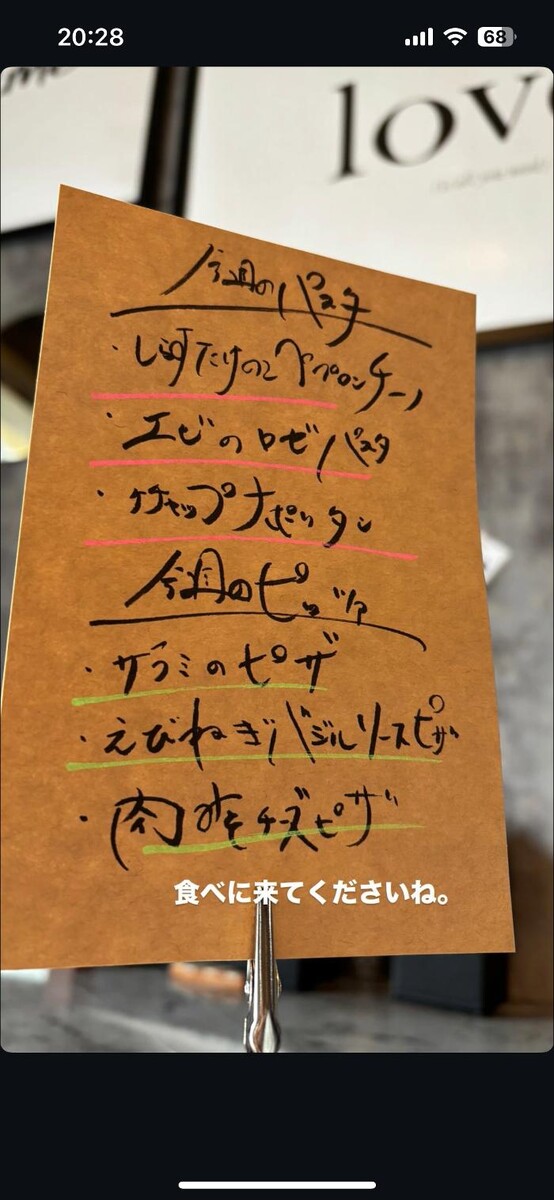 20:28
68
lov
今週のパスタ
・たけのこペペロンチーノ
・エビのロゼパスタ
・ケチャップナポリタン
今週のピッツァ
・サラミのピザ
・えびねぎバジルソースピザ
・肉みそチーズピザ
食べに来てくださいね。